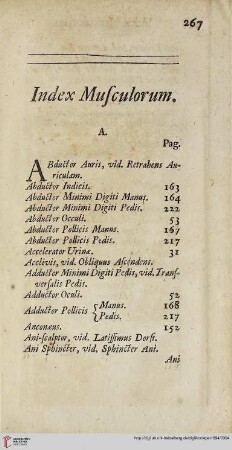 267
Index Musculorum.
A.
Pag.
ABductor Auris, vid. Retrahens Au-
riculam.
Abductor Indicis. 163
Abductor Minimi Digiti Manus. 164
Abductor Minimi Digiti Pedis. 222
Abductor Occuli. 53
Abductor Pollicis Manus. 167
Abductor Pollicis Pedis. 217
Accelerator Urinæ. 31
Acclivis, vid. Obliquus Ascendens.
Adductor Minimi Digiti Pedis, vid. Transf-
versalis Pedis.
Adductor Oculi. 52
Adductor Pollicis { Manus. 168
Pedis. 217
Anconæus. 152
Ani-scalptor, vid. Latissimus Dorsi.
Ani Sphincter, vid. Sphincter Ani.
Ani